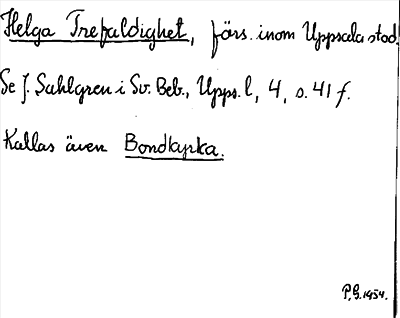 Helga Trefaldighet, förs. inom Uppsala stad.
Se J. Sahlgren i Sv. Beb., Upps. l, 4, s. 41 f.
Kallas även Bondkyrka.
P.G. 1954.